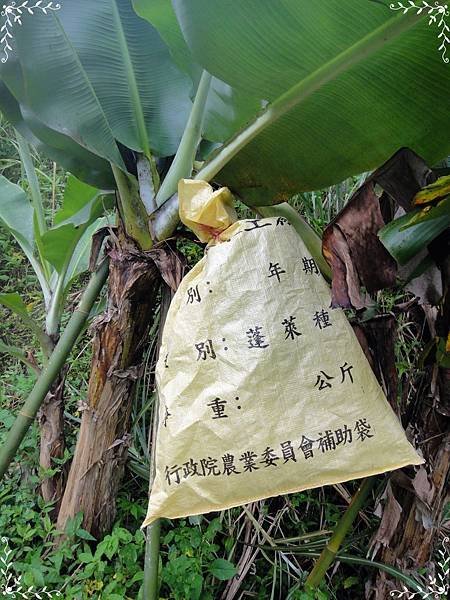 別： 年 期
別：蓬萊種
重： 公斤
行政院農業委員會補助袋